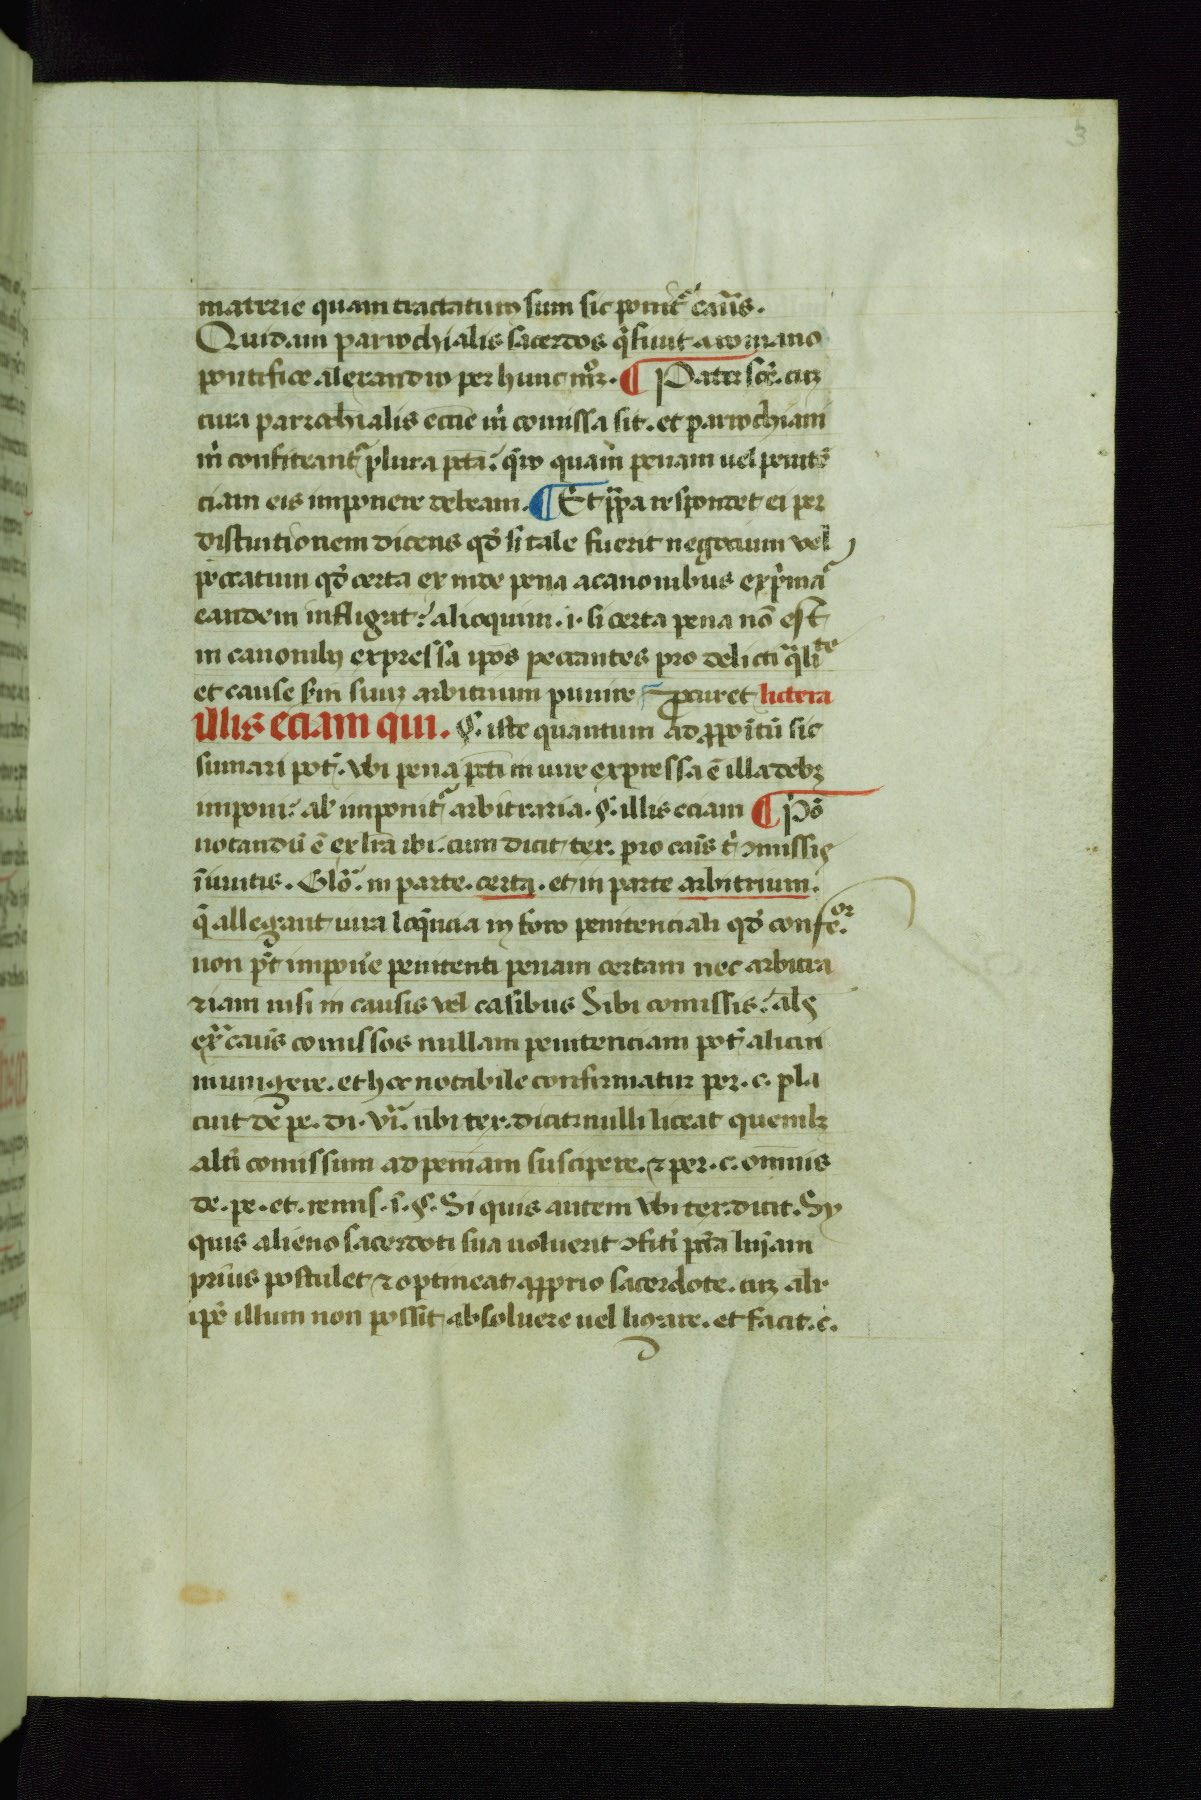 3
materie quam tractatum sum sic ponitᷣ caūs.
Quidam parrochialis sacerdos q̄siuit a romano
pontifice alexandro per hunc mōꝝ. ¶ Pater scē. cuꝫ
cura parrochialis eccīe m̄ comissa sit. et parrochiani
m̄ confiteantᷣ plura pctā: q̄ro quam penam uel penitē
ciam eis imponere debeam. ¶ Et papa respondet ei per
distinctionem dicens qđ si tale fuerit negocium vel
peccatum qđ certa ex inde pena a canonibus exp̄matᷣ
eandem infligat: alioquim .i. si certa pena nō est
in canonibꝰ expressa ip̄os peccantes pro delicti q̄litate
et cause sm̄ suuꝫ arbitrium punire paret littera
illis eciam qui. §. iste quantum ad ꝓpoītū sic
sumari potᷣ. vbi pena pcti in iure expressa ē illa debꝫ
imponi: al̄r imponitᷣ arbitraria. §. illis eciam ¶ Pō
notandū ē ex lr̄a ibi. cum dicit ter. pro caūs t̄ ꝯmissis
iunitis. Glō. in parte. certa. et in parte arbitrium.
q̄ allegant iura loq̄ncia in foro penitenciali qđ confeor.
non pōt imponēe penitenti penam certam nec arbitra
riam nisi in causis vel casibus Sibi comissis: als
ex̄ caūs comissos nullam penitenciam potᷣ alicui
iniungere. et hoc notabile confirmatur per .c. pla
cuit de pe. di. vi. ubi ter. dicit nulli liceat quemlꝫ
altī comissum ad peniam suscipere. ⁊ per .c. omnis
de. pe. et. remis. i. §. Si quis autem vbi ter. dicit. Sy
quis alieno sacerdoti sua uoluerit ꝯfitī pctā ln̄ciam
prius postulet ⁊ optineat a ꝓprio sacerdote. cuꝫ alr̄
ip̄e illum non possit absoluere uel ligare. et facit .c.